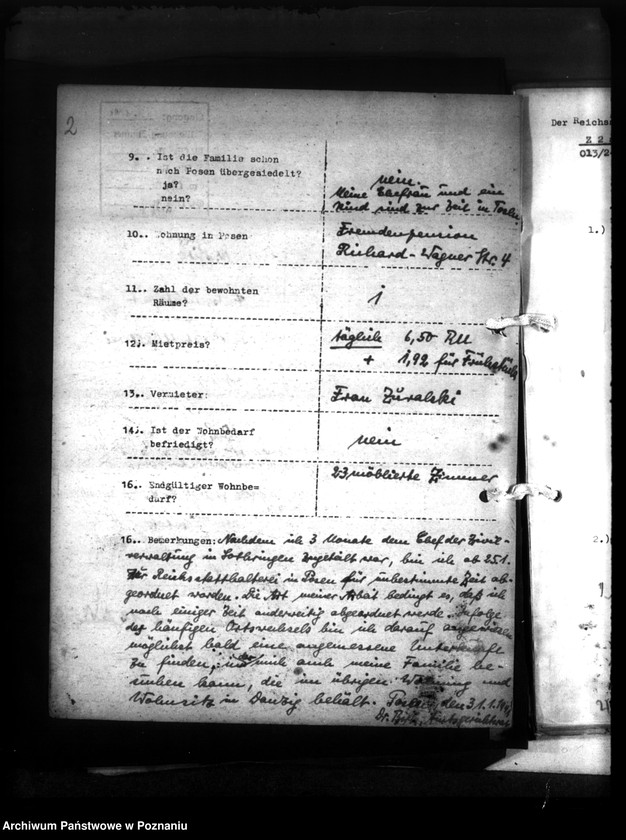 2
9.. Ist die Familie schon
nach Posen übergesiedelt?
ja?
nein?
nein.
Meine Ehefrau und ein
Kind sind zur Zeit in
10.. Wohnung in Posen
Fremdenpension
Richard-Wagner Str. 4
11.. Zahl der bewohnten
Räume?
1
12.. Mietpreis?
täglich 6,50 RM
+ 1,92 für Frühstück
13.. Vermieter:
Frau Zuralski
14.. Ist der Wohnbedarf
befriedigt?
nein
16.. Endgültiger Wohnbe=
darf?
23 möblierte Zimmer
16.. Bemerkungen: Nachdem ich 3 Monate dem Chef der Zivil-
verwaltung in Lothringen zugeteilt war, bin ich ab 25.1.
zur Reichsstatthalterei in Posen für unbestimmte Zeit ab-
geordnet worden. Die Art meiner Arbeit bedingt es, daß ich
nach einiger Zeit anderweitig abgeordnet werde. Infolge
des häufigen Ortswechsels bin ich darauf angewiesen
möglichst bald eine angemessene Unterkunft
zu finden, mich auch meine Familie be-
suchen kann, die im übrigen Wohnung und
Wohnsitz in Danzig behält. Posen, den 31.1.
Dr.
Der Reichs
013/2
1.)
2.)
Archiwum Państwowe w Poznaniu